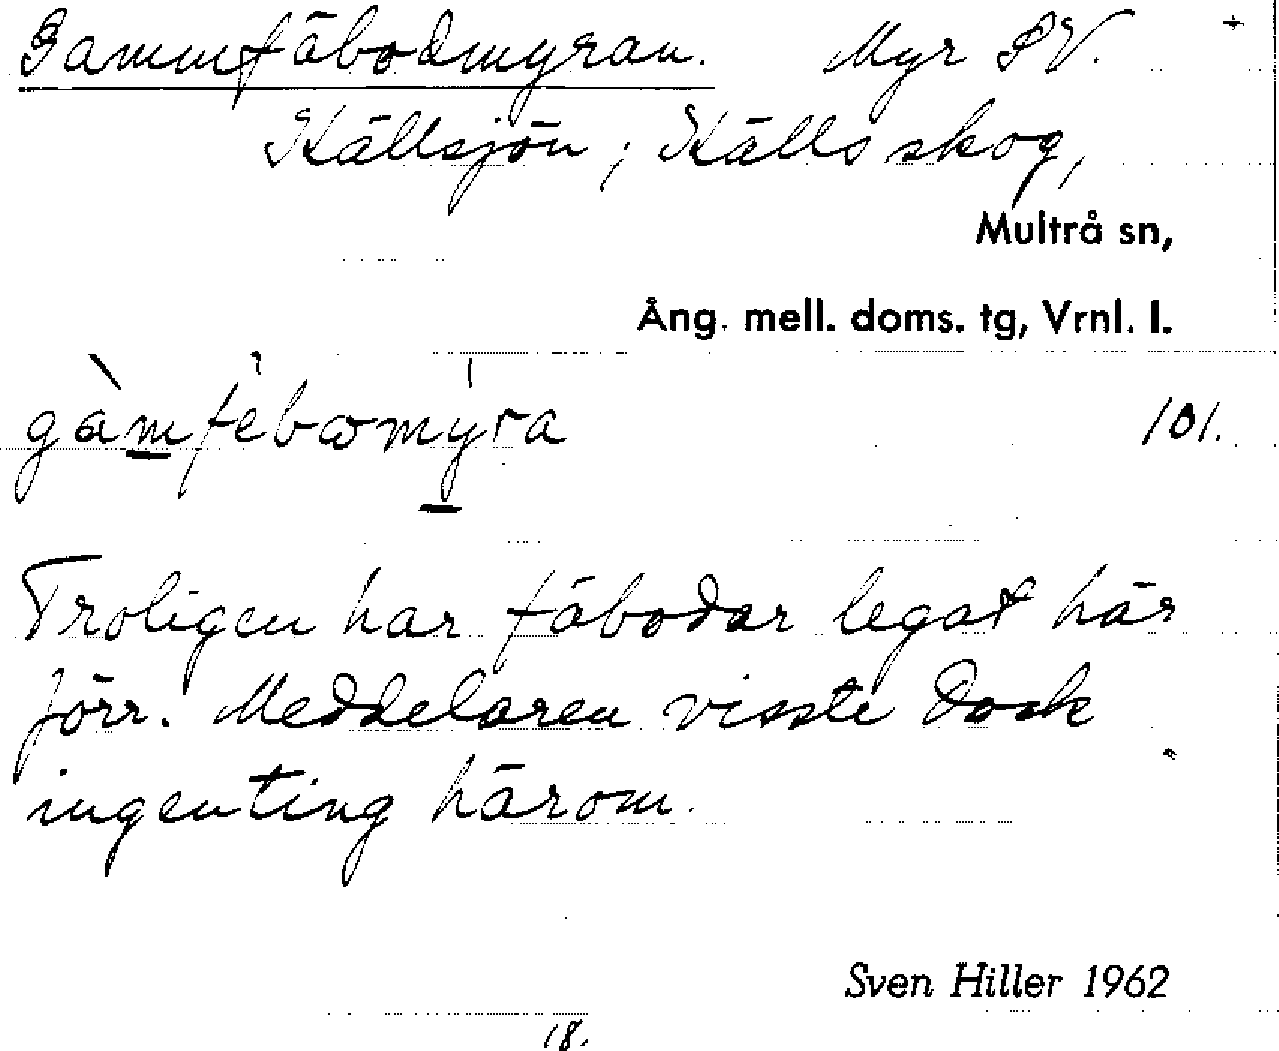 Gammfäbodmyran. Myr SV. +
Källsjön, Källs skog,
Multrå sn,
Ång. mell. doms. tg, Vrnl. l.
gàmfèbωmýra 101.
Troligen har fäbodar legat här
förr. Meddelaren visste dock
ingenting härom.
Sven Hiller 1962
18.